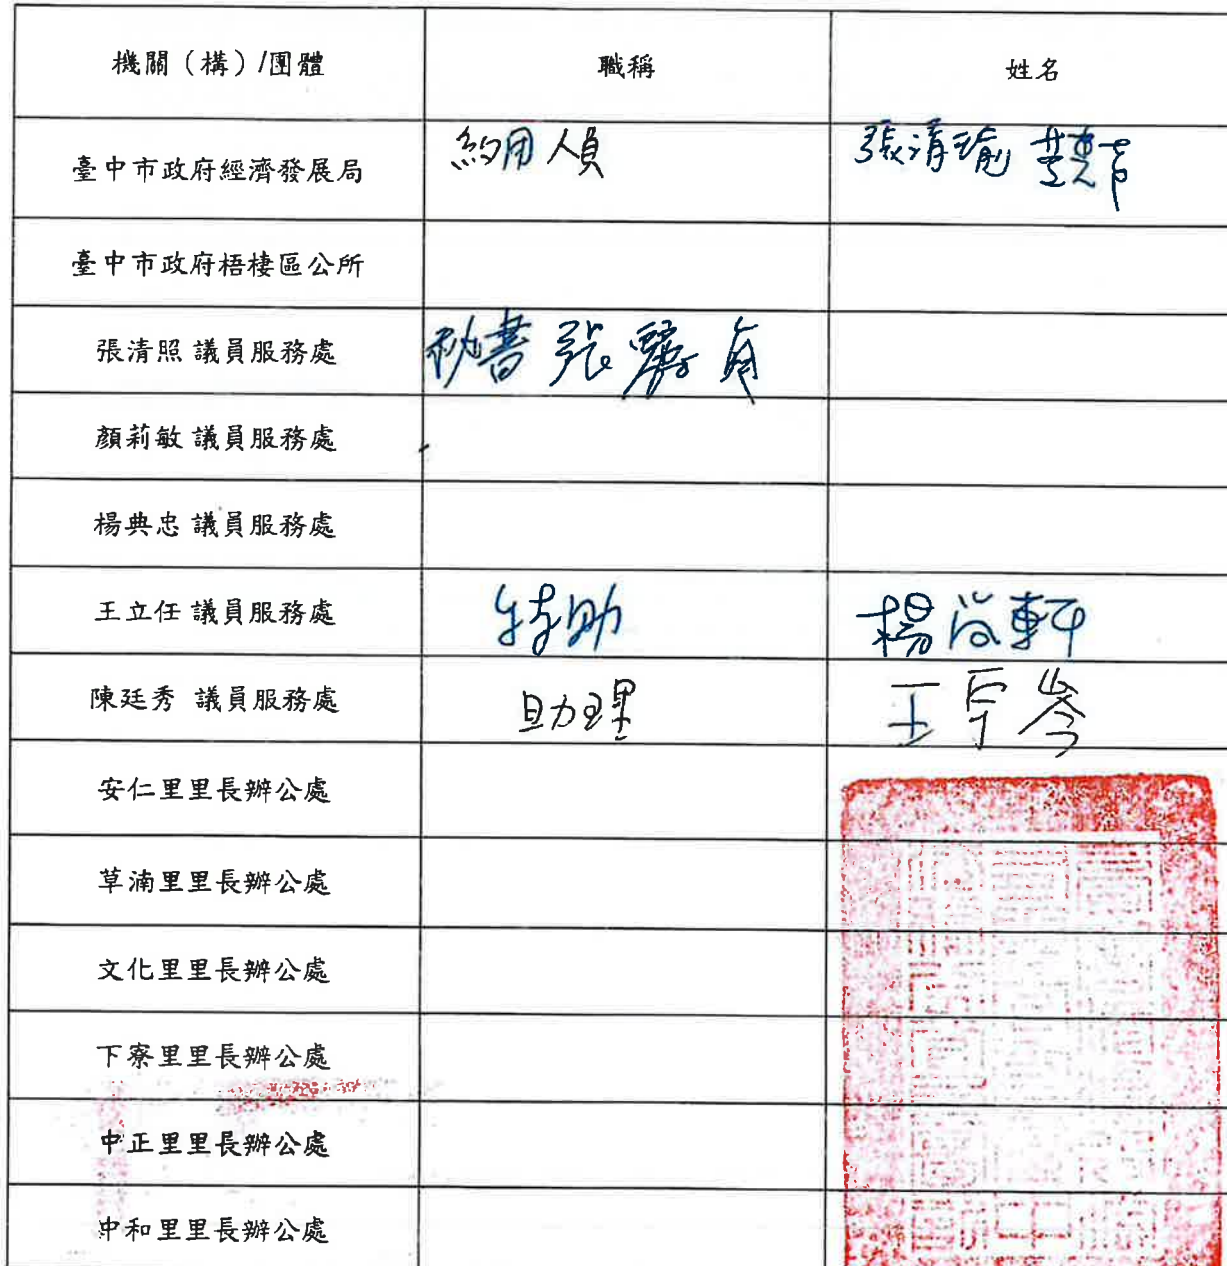 機關（構）/團體 職稱 姓名
臺中市政府經濟發展局 約用人員 張清瑜
臺中市政府梧棲區公所
張清照 議員服務處 秘書 張麗貞
顏莉敏 議員服務處
楊典忠 議員服務處
王立任 議員服務處 特助 楊尚軒
陳廷秀 議員服務處 助理 王
安仁里里長辦公處
草湳里里長辦公處
文化里里長辦公處
下寮里里長辦公處
中正里里長辦公處
中和里里長辦公處